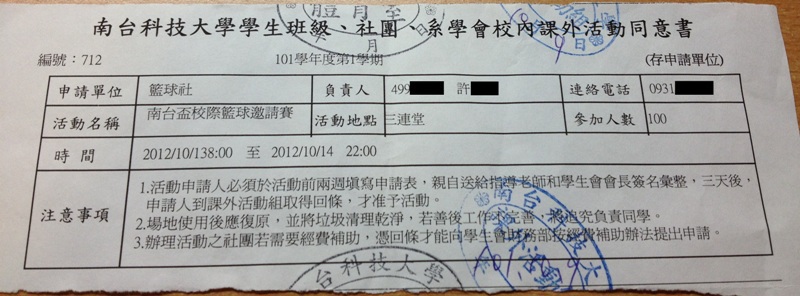 南台科技大學學生班級、社團、系學會校內課外活動同意書
編號：712 101學年度第1學期 (存申請單位)
申請單位 籃球社 負責人 499 許 連絡電話 0931
活動名稱 南台盃校際籃球邀請賽 活動地點 三連堂 參加人數 100
時間 2012/10/138:00 至 2012/10/14 22:00
注意事項
1.活動申請人必須於活動前兩週填寫申請表，親自送給指導老師和學生會會長簽名彙整，三天後，
申請人到課外活動組取得回條，才准予活動。
2.場地使用後應復原，並將垃圾清理乾淨，若善後工作不完善，將追究負責同學。
3.辦理活動之社團若需要經費補助，憑回條才能向學生會財務部按經費補助辦法提出申請。
南台科技大
台科技大學